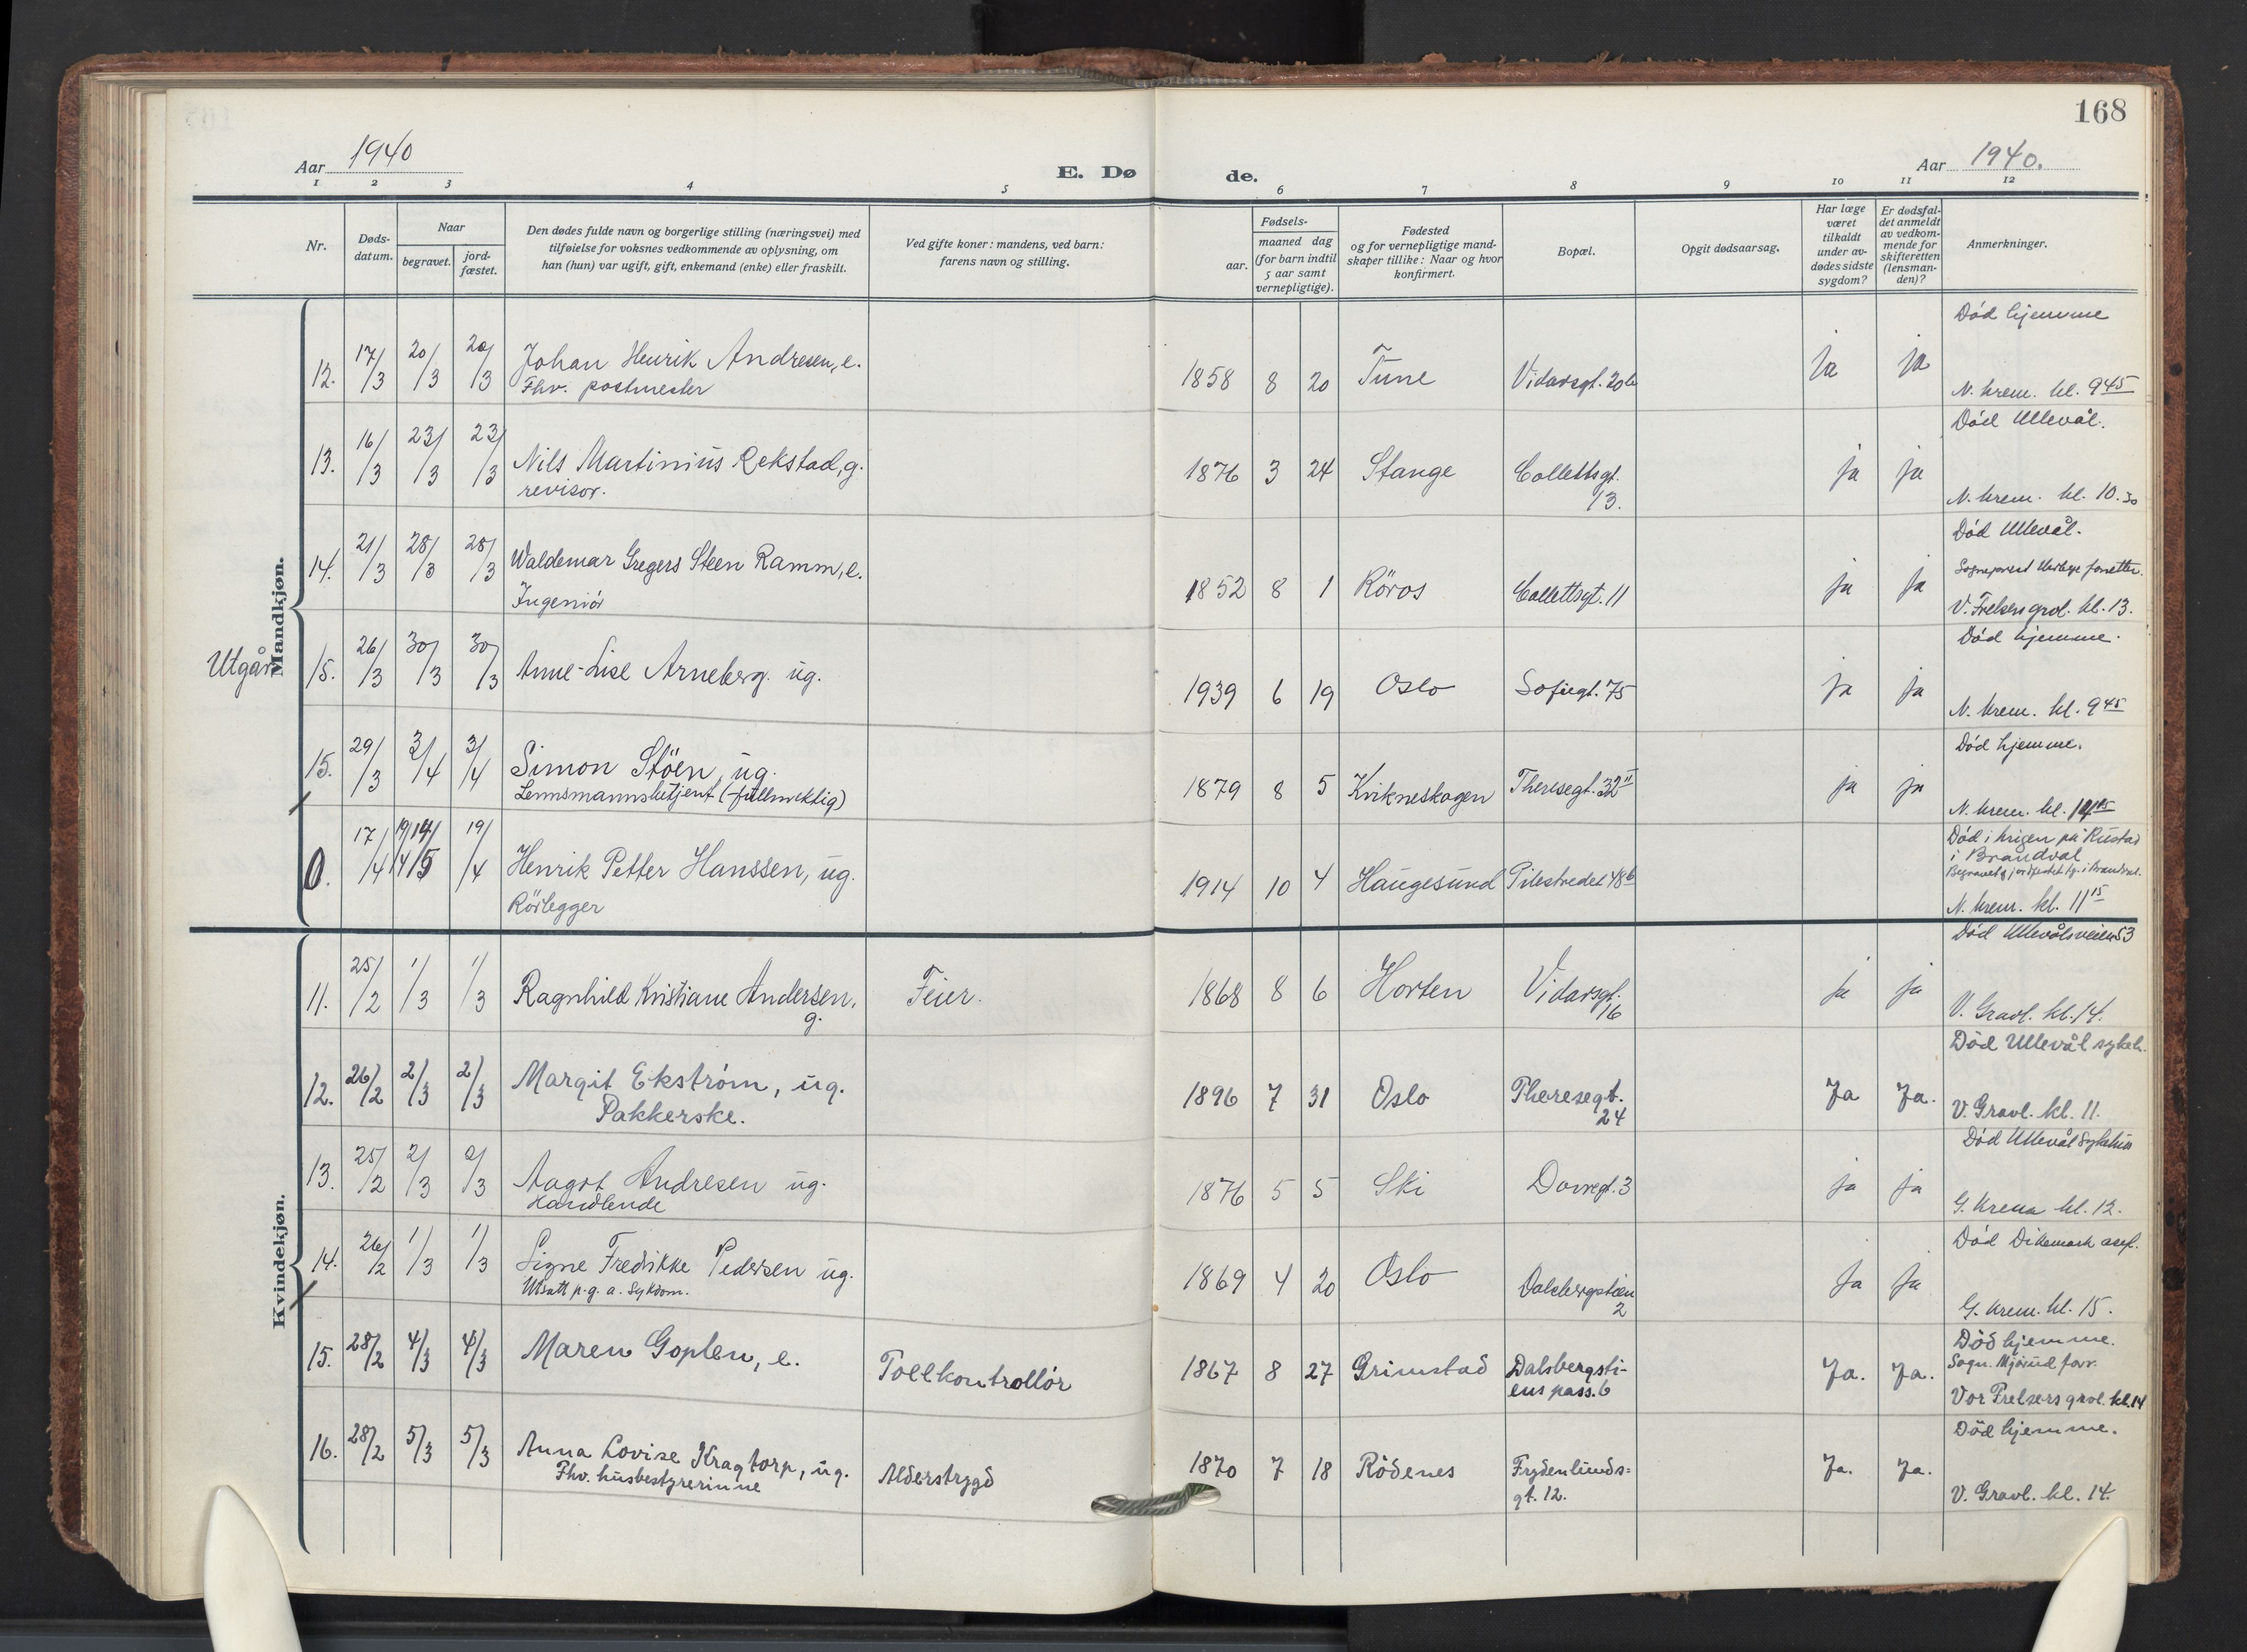 168
Aar 1940
E. Dø
de.
Aar 1940.
1 2 3 4 5 6 7 8 9 10 11 12
Nr.
Døds-
datum.
Naar
begravet.
jord-
fæstet.
Den dødes fulde navn og borgerlige stilling (næringsvei) med
tilføielse for voksnes vedkommende av oplysning, om
han (hun) var ugift, gift, enkemand (enke) eller fraskilt.
Ved gifte koner: mandens, ved barn:
farens navn og stilling.
Fødsels-
aar.
maaned dag
(for barn indtil
5 aar samt
vernepligtige).
Fødested
og for vernepligtige mand-
skaper tillike: Naar og hvor
konfirmert.
Bopæl.
Opgit dødsaarsag.
Har læge
været
tilkaldt
under av-
dødes sidste
sygdom?
Er dødsfal-
det anmeldt
av vedkom-
mende for
skifteretten
(lensman-
den)?
Anmerkninger.
Mandkjøn.
Død hjemme
12. 17/3 20/3 20/3 Johan Henrik Andresen, e. 1858 8 20 Tune Vidarsgt. 20b ja ja
Fhv. postmester
N. krem. kl. 9 45
Død Ullevål.
13. 16/3 23/3 23/3 Nils Martinius Rekstad, g. 1876 3 24 Stange Collettsgt. ja ja
revisor. 13.
N. krem. kl. 10.30
Død Ullevål.
14. 21/3 28/3 28/3 Waldemar Gregers Steen Ramm, e. 1852 8 1 Röros Collettsgt. 11 ja ja Sogneprest forretter.
Ingeniör
V. Frelsers grvl. kl. 13.
Død hjemme.
Utgår 15. 26/3 30/3 30/3 Anne-Lise Arneberg. ug. 1939 6 19 Oslo Sofiegt. 75 ja ja
N. krem. kl. 9 45
Død hjemme.
15. 29/3 3/4 3/4 Simon Stöen, ug. 1879 8 5 Kvikneskogen Theresegt. 32 II ja ja
Lennsmannsbetjent (-fullmektig)
N. krem. kl.
Død i krigen på Rustad
i Brandval
0. 17/4 19/4 14/5 19/4 Henrik Petter Hanssen, ug. 1914 10 4 Haugesund Pilestredet 48b Begravet og jordfestet i Brandval.
Rörlegger
N. krem. kl. 11 15
Kvindekjøn.
Død Ullevålsveien 53
11. 25/2 1/3 1/3 Ragnhild Kristiane Andersen, Feier. 1868 8 6 Horten Vidarsgt. ja ja
g. 16
V. Gravl. kl. 14.
Død Ullevål sykeh.
12. 26/2 2/3 2/3 Margit Ekström, ug. 1896 7 31 Oslo Theresegt. Ja Ja.
Pakkerske. 24
V. Gravl. kl. 11.
Død Ullevål Sykehus
13. 25/2 2/3 2/3 Aagot Andresen ug. 1876 5 5 Ski Dovregt. 3 ja ja
Handlende
G. Krem kl. 12.
Død Dikemark asyl.
14. 26/2 1/3 1/3 Signe Fredrikke Pedersen ug. 1869 4 20 Oslo Dalsbergstien Ja Ja
Utsatt p.g.a. Sykdom. 2
G. krem. kl. 15.
Død hjemme.
15. 28/2 4/3 4/3 Maren Goplen, e. Tollkontrollör 1867 8 27 Grimstad Dalsbergsti- Ja. Ja. Sogn. Mjösund forr.
ens pass. 6
Vor Frelsers grvl. kl. 14
Död hjemme.
16. 28/2 5/3 5/3 Anna Lovise Kragtorp, ug. Alderstrygd 1870 7 18 Rödenes Frydenlunds- Ja. Ja.
Fhv. husbestyrerinne gt. 12.
V. Gravl. kl. 14.